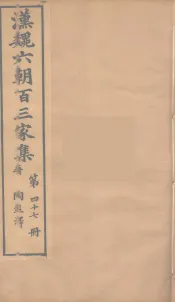 漢魏六朝百三家集
第四十七冊
晉 陶彭澤